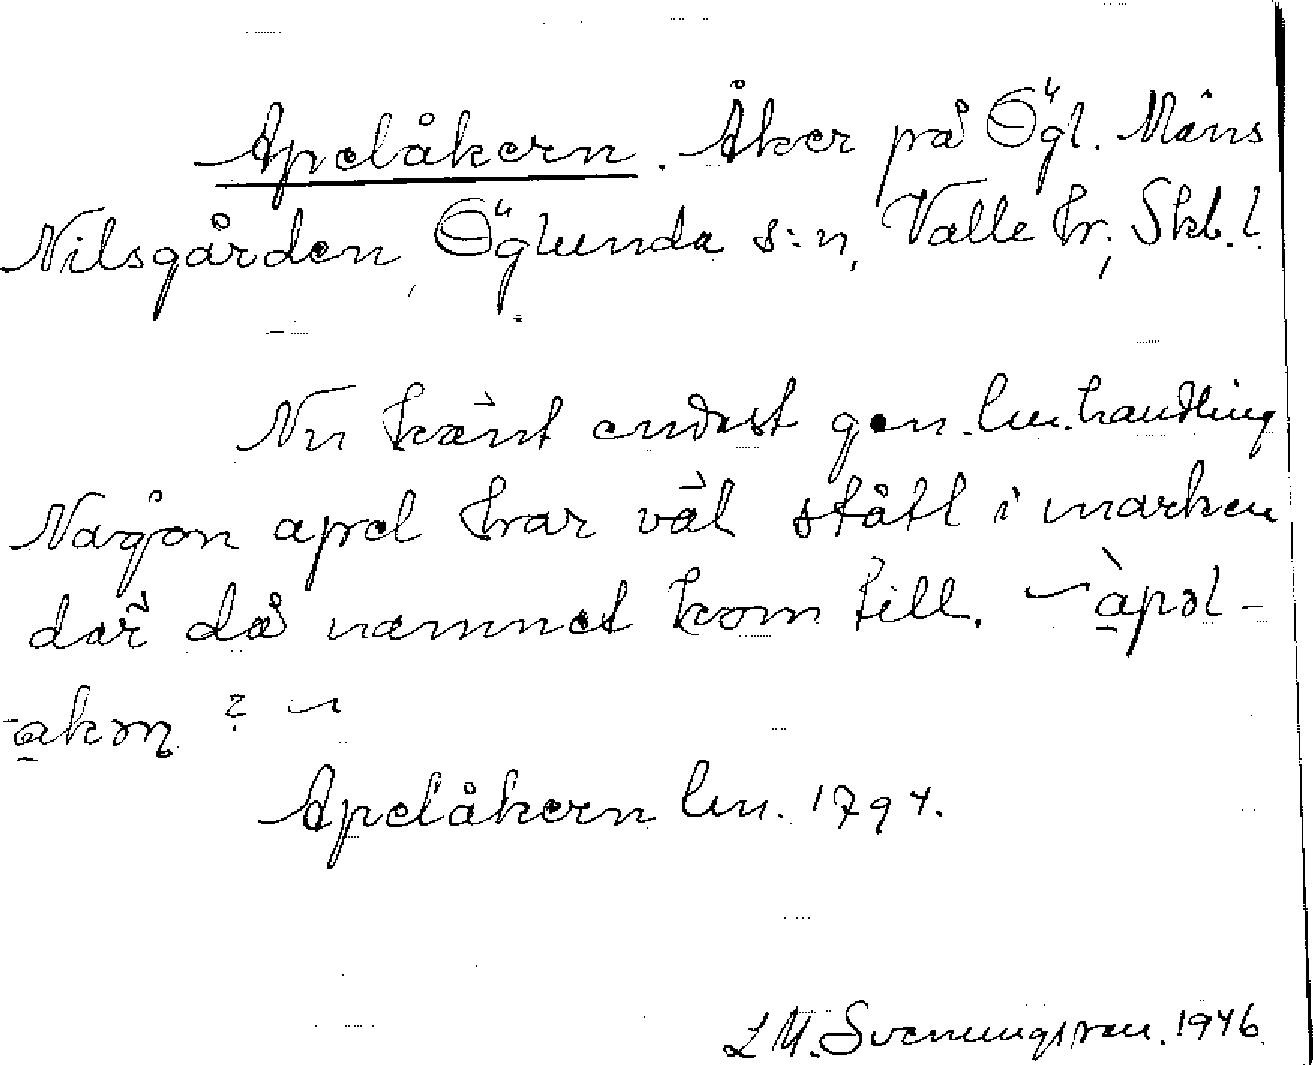 Apelåkern. Åker på Ögl. Måns
Nilsgården, Öglunda s:n, Valle hr, Skb. l.
Nu känt endast gen. lm. handling
Någon apel har väl stått i marken
där då namnet kom till. ~ àpəl-
-akən ? ~
Apelåkern lm. 1794.
L M. Svenungsson. 1946